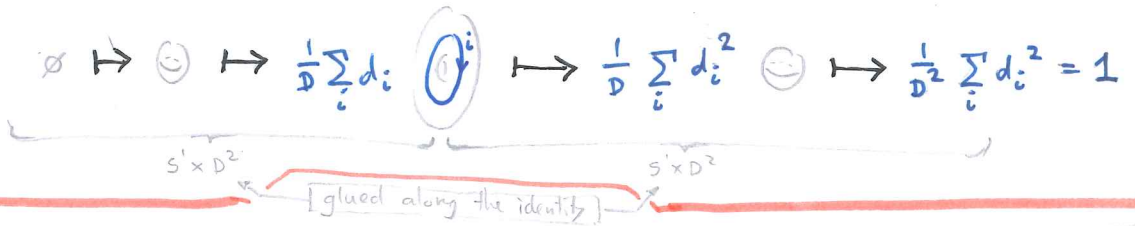 ∅ ↦ ↦ 1/D ∑_i d_i i ↦ 1/D ∑_i d_i² ↦ 1/D² ∑_i d_i² = 1
S¹ × D² S¹ × D²
[glued along the identity]